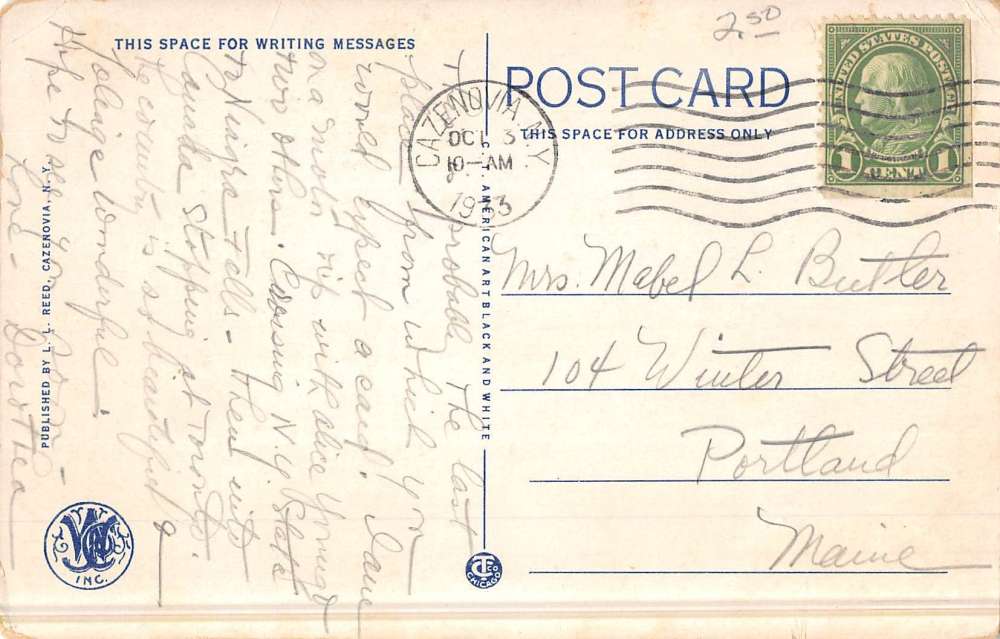 2.50
THIS SPACE FOR WRITING MESSAGES
POST CARD
THIS SPACE FOR ADDRESS ONLY
UNITED STATES POSTAGE
1 CENT 1
CAZENOVIA, N.Y.
OCT 3
10-AM
1933
This probably the last
place from which you
would expect a card. I am
on a motor trip with Alice Young &
two others. Crossing N.Y. State
to Niagra Falls - then into
Canada stopping at Toronto.
The country is so beautiful &
foliage wonderful.
Hope to see you soon -
Love - Dorothea
Mrs. Mabel L. Butler
104 Winter Street
Portland
Maine
PUBLISHED BY L. L. REED, CAZENOVIA, N. Y.
C. T. AMERICAN ART BLACK AND WHITE
INC.
CHICAGO